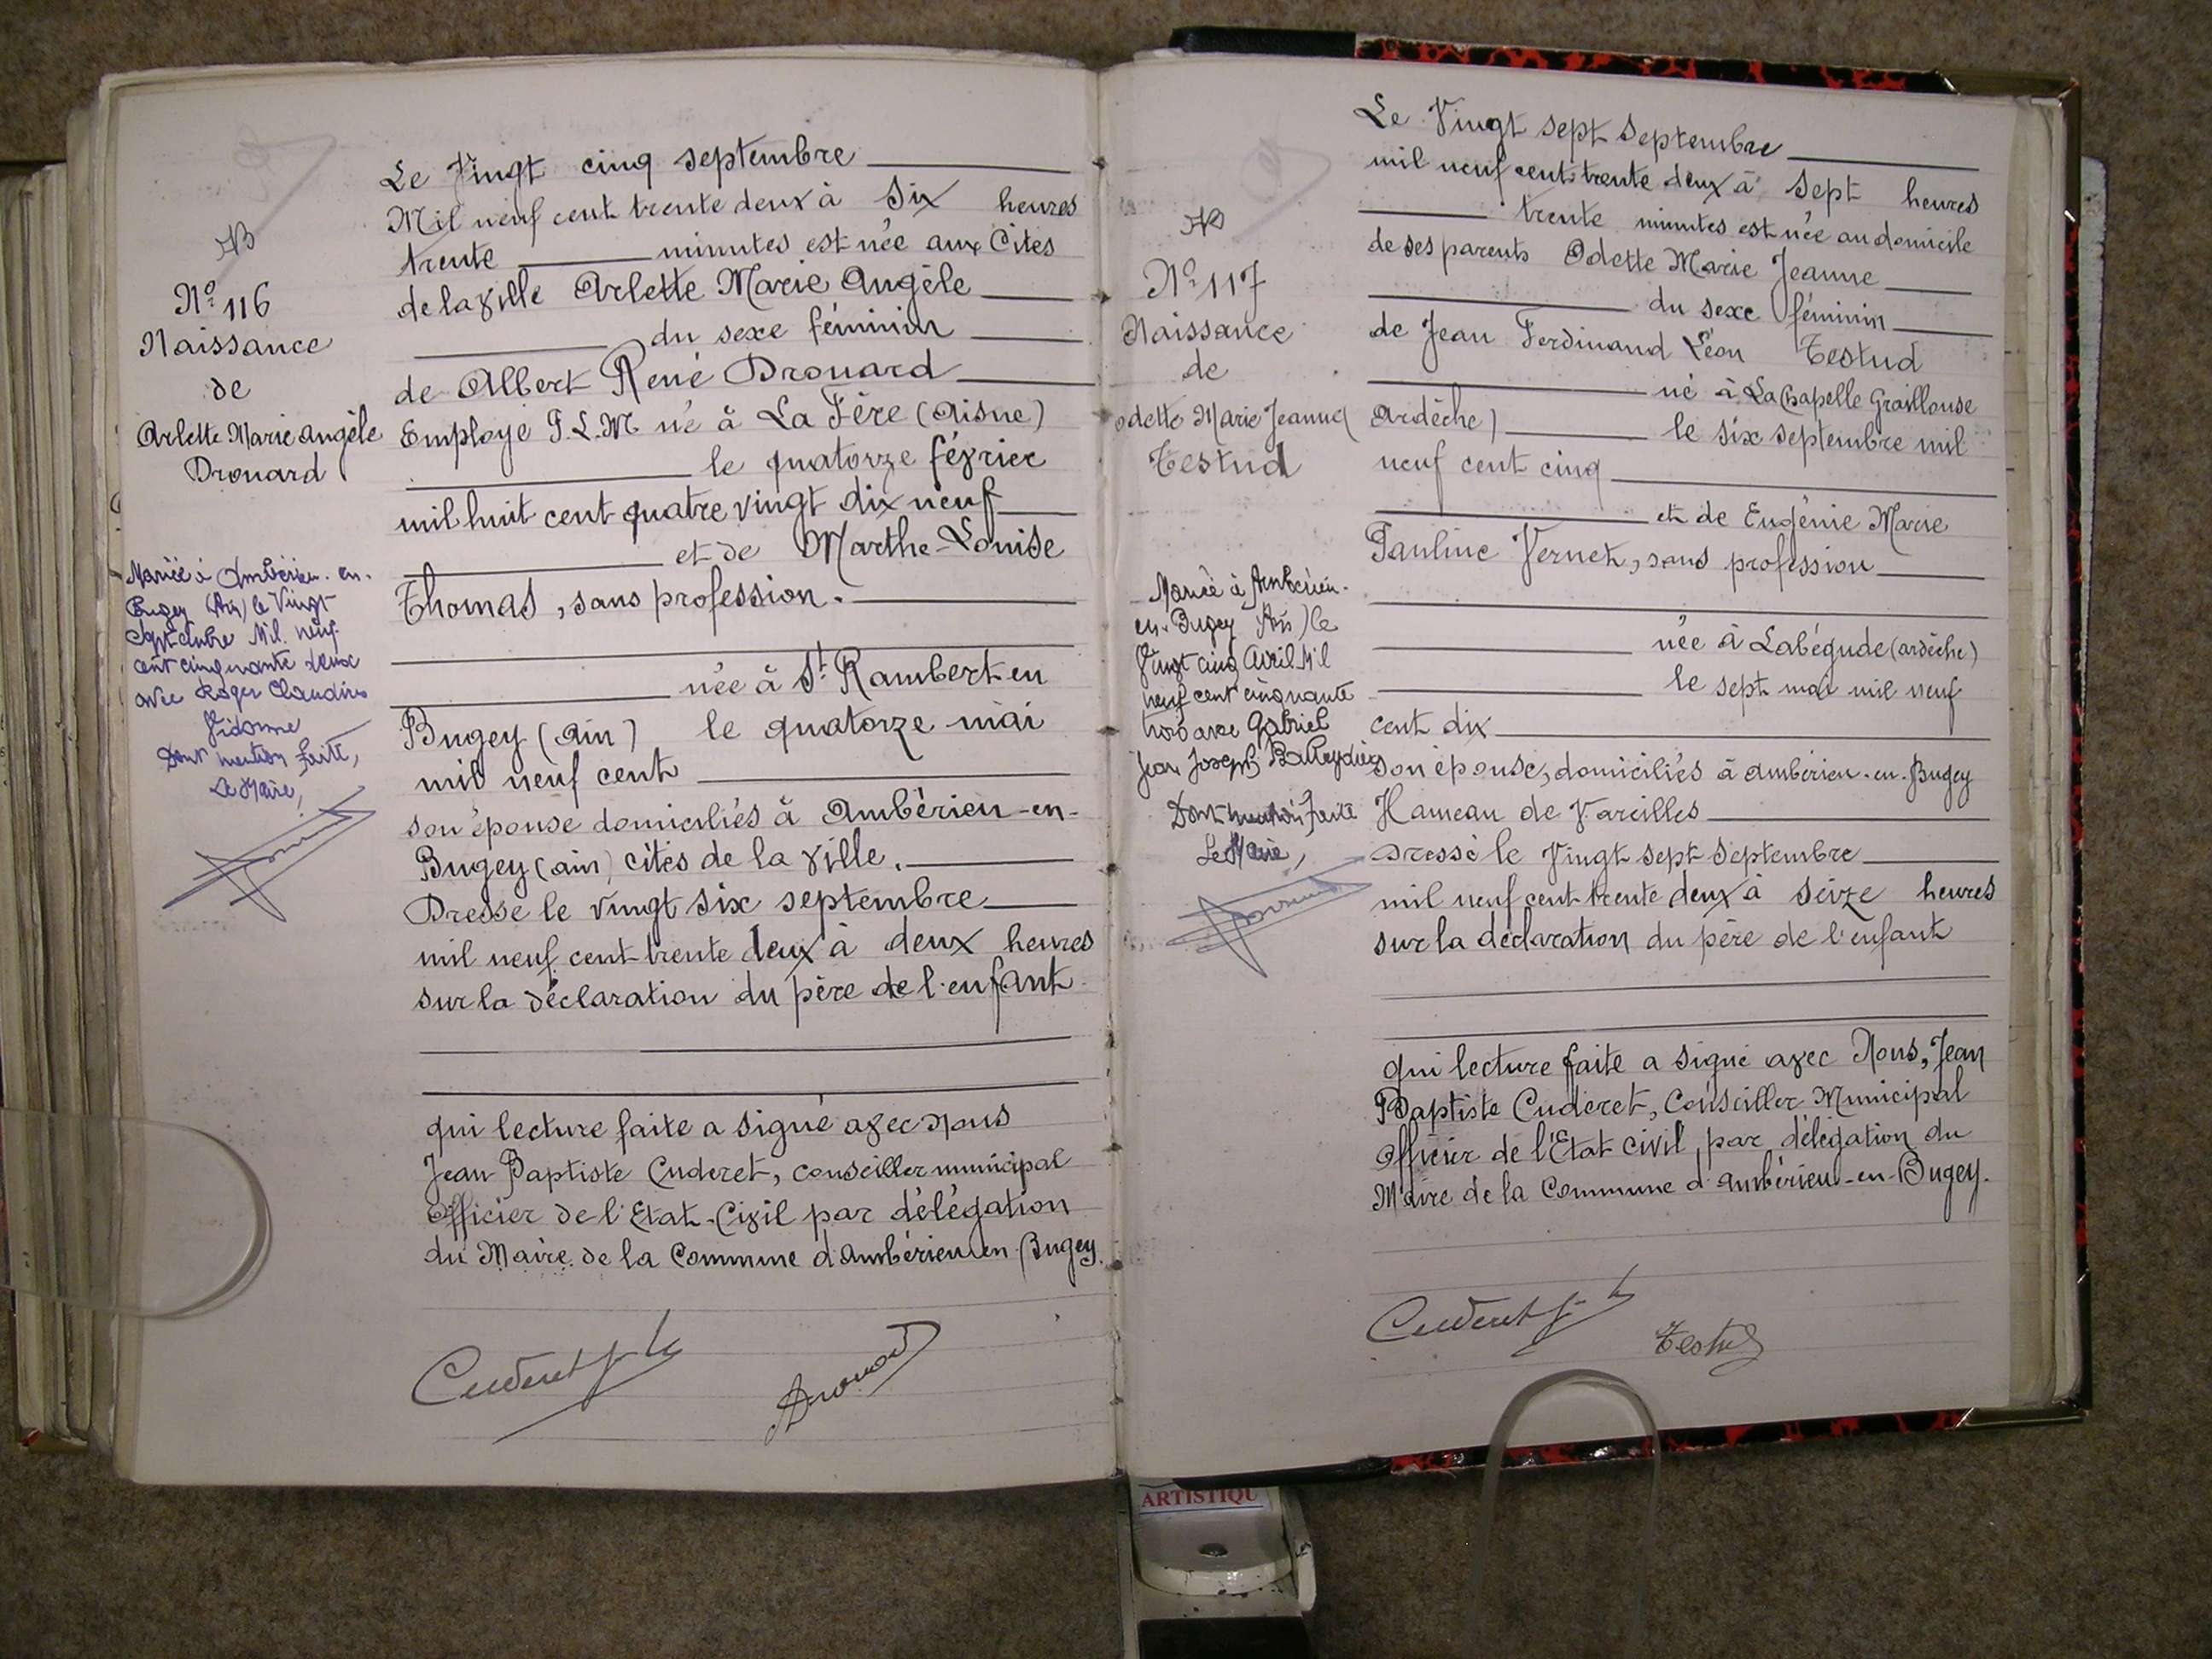 N°116
Naissance
de
Arlette Marie Angèle
Drouard
Mariée à Ambérieu-en-
Bugey (Ain) le Vingt
Septembre Mil neuf
cent cinquante deux
avec Roger Claudius
Vidonne
Dont mention faite,
Le Maire,
Le Vingt cinq septembre
Mil neuf cent trente deux à six heures
trente minutes est née aux Cités
de la ville Arlette Marie Angèle
du sexe féminin
de Albert René Drouard
Employé P.L.M né à La Fère (Aisne)
le quatorze février
mil huit cent quatre vingt dix neuf
et de Marthe-Louise
Thomas, sans profession.
née à St Rambert en
Bugey (Ain) le quatorze mai
mil neuf cent
son épouse domiciliés à Ambérieu-en-
Bugey (ain) cités de la ville.
Dressé le vingt six septembre
mil neuf cent trente deux à deux heures
sur la déclaration du père de l'enfant
qui lecture faite a signé avec Nous
Jean Baptiste Cuderet, conseiller municipal
Officier de l'Etat-Civil par délégation
du Maire de la Commune d'Ambérieu en Bugey.
Cuderet
Drouard
N°117
Naissance
de
Odette Marie Jeanne
Testud
Mariée à Ambérieu-
en-Bugey (Ain) le
Vingt cinq Avril Mil
neuf cent cinquante
trois avec Gabriel
Jean Joseph
Dont mention faite
Le Maire,
Le Vingt sept Septembre
mil neuf cent trente deux à sept heures
trente minutes est née au domicile
de ses parents Odette Marie Jeanne
du sexe féminin
de Jean Ferdinand Léon Testud
né à La Chapelle Graillouse
Ardèche) le six septembre mil
neuf cent cinq
et de Eugénie Marie
Pauline Vernet, sans profession
née à Labégude (ardèche)
le sept mai mil neuf
cent dix
son épouse, domiciliés à Ambérieu-en-Bugey
Hameau de Vareilles
Dressé le Vingt sept Septembre
mil neuf cent trente deux à seize heures
sur la déclaration du père de l'enfant
qui lecture faite a signé avec Nous, Jean
Baptiste Cuderet, Conseiller Municipal
Officier de l'Etat civil, par délégation du
Maire de la Commune d'Ambérieu-en-Bugey.
Cuderet
Testud
ARTISTIQU